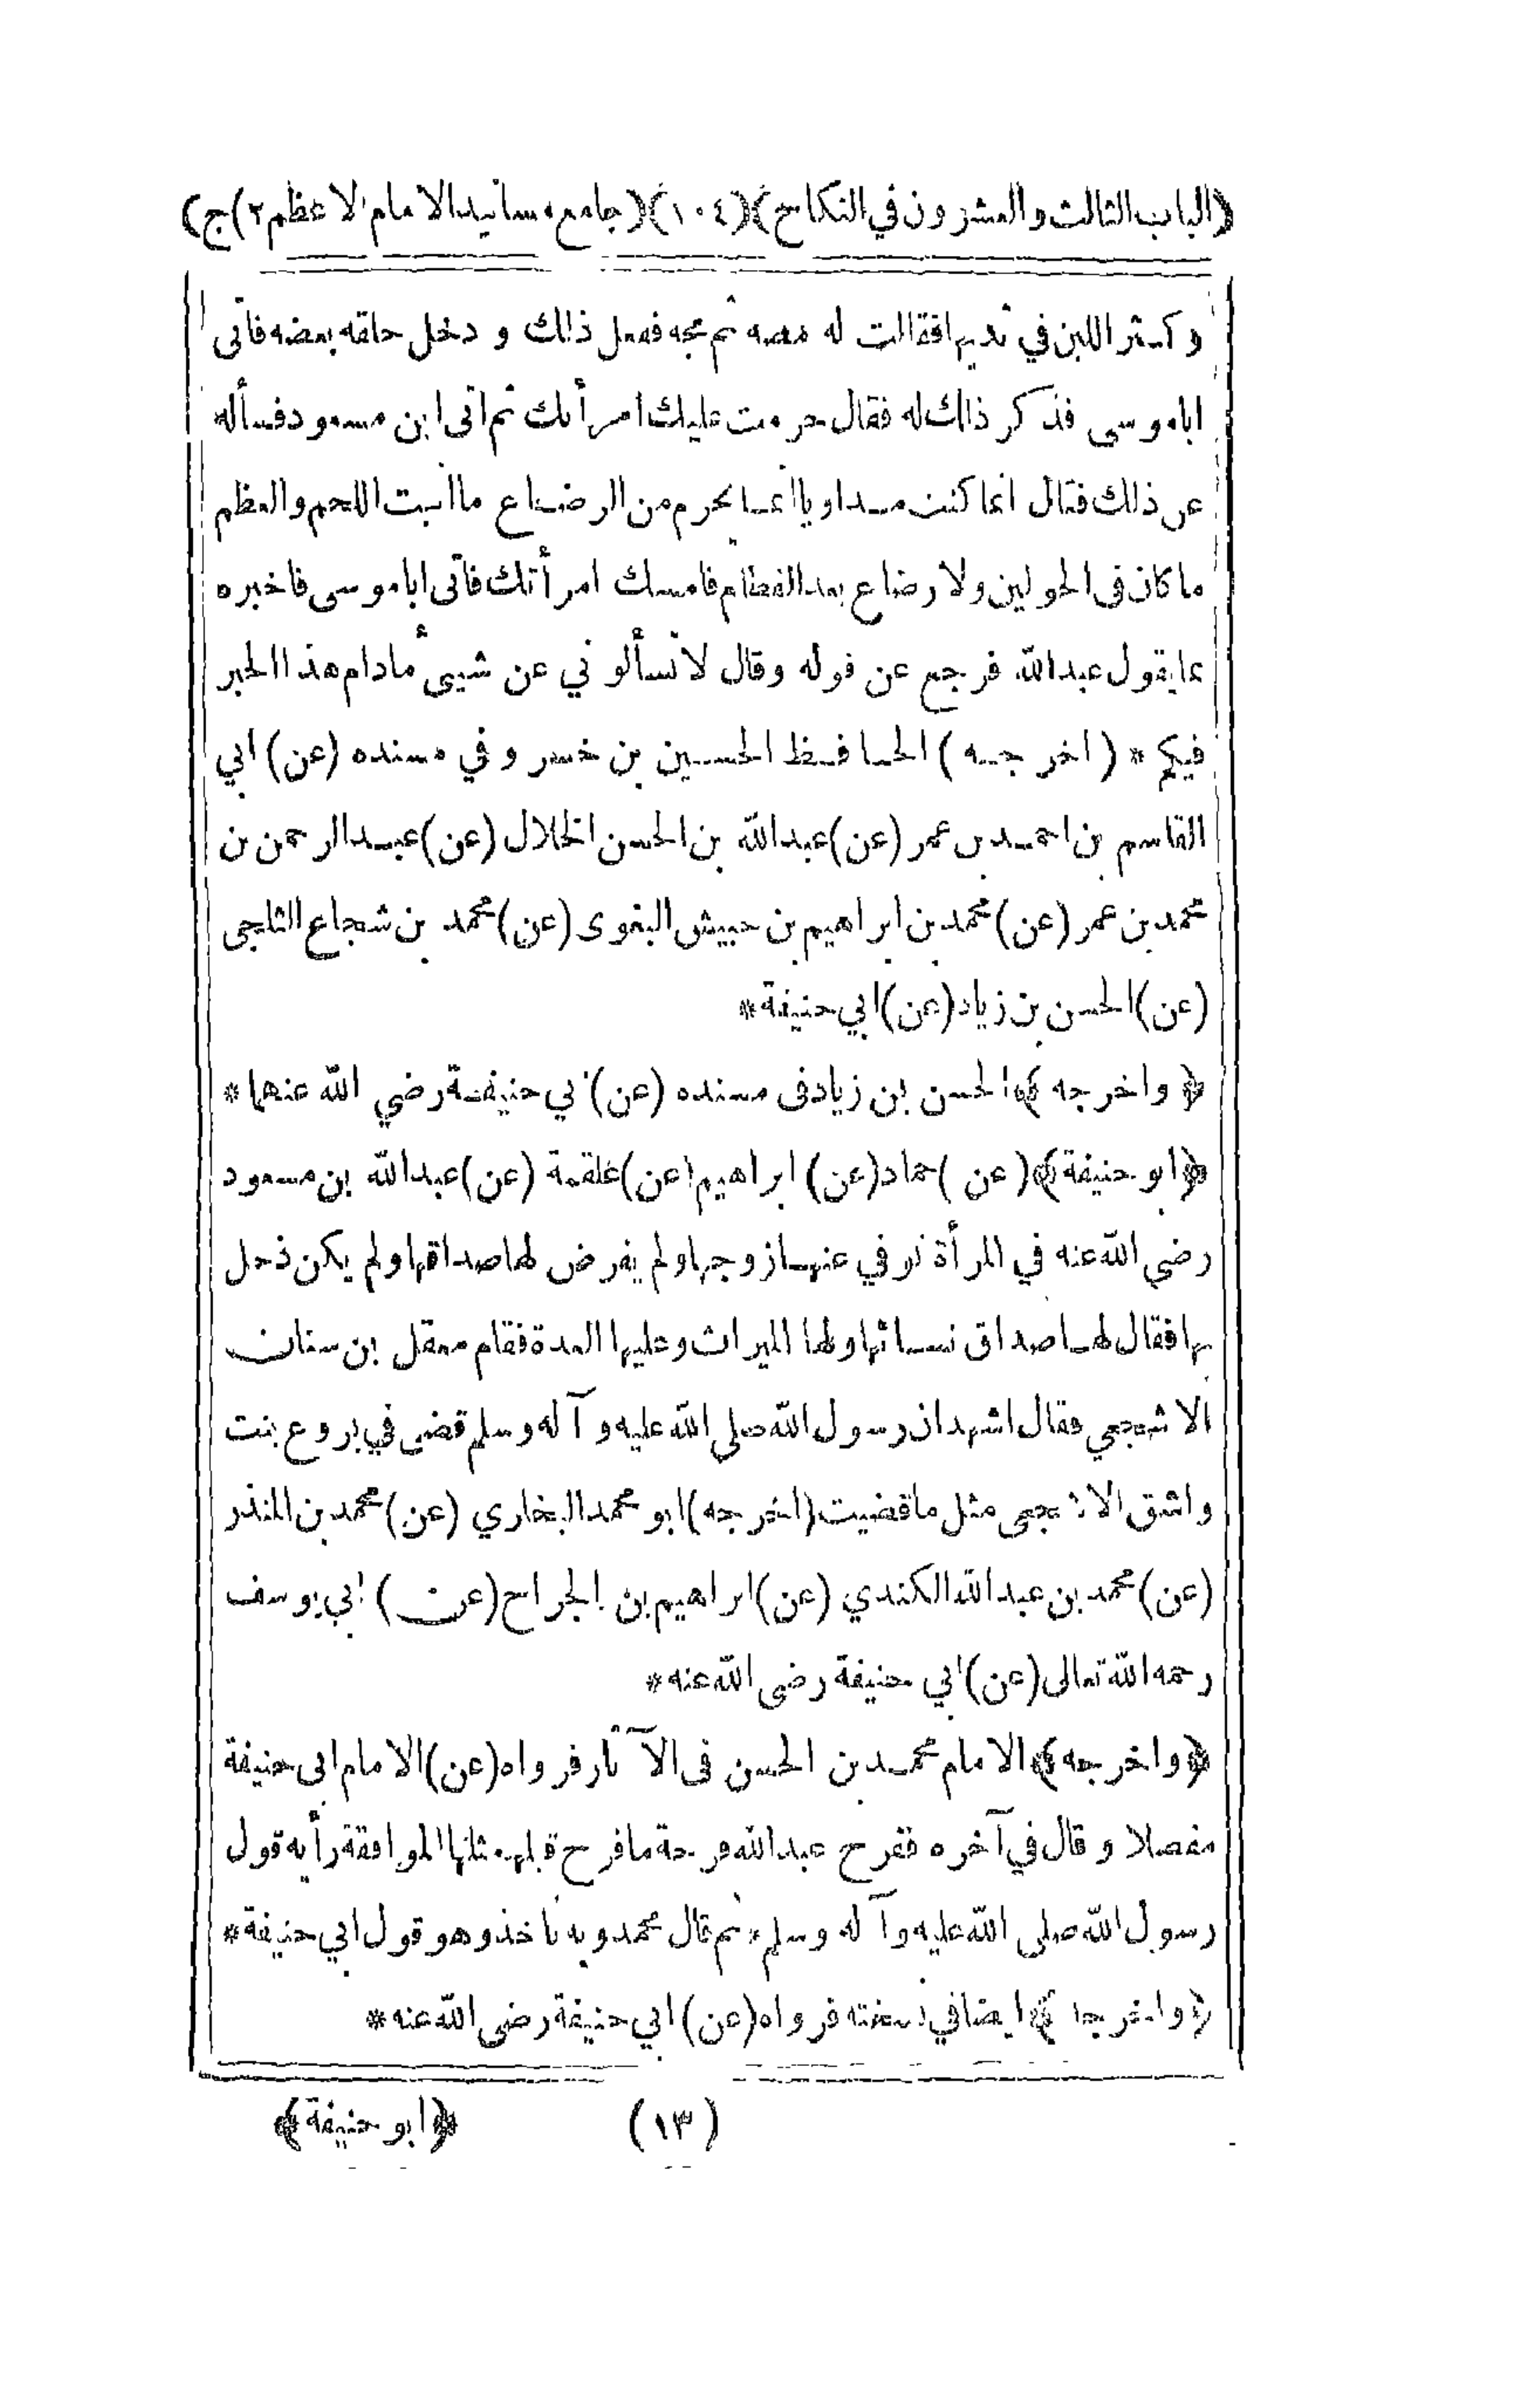 (الباب الثالث والعشرون في النكاح) (١٠٤) (جامع مسانيد الامام الاعظم ٢) ج)
وكثر اللبن في ثديها فقالت له مصه ثم مجه ففعل ذلك و دخل حلقه بعضه فأتى
اباموسى فذكر ذلك له فقال حرمت عليك امرأتك ثم اتى ابن مسعود فسأله
عن ذلك فقال انما كنت مداويا انما يحرم من الرضاع ما انبت اللحم والعظم
ما كان فى الحولين ولا رضاع بعد الفطام فامسك امرأتك فأتى اباموسى فاخبره
بما يقول عبد الله فرجع عن قوله وقال لا تسألوني عن شيئ ما دام هذا الحبر
فيكم * (اخرجه) الحافظ الحسين بن خسرو في مسنده (عن) ابي
القاسم بن احمد بن عمر (عن) عبد الله بن الحسن الخلال (عن) عبد الرحمن بن
محمد بن عمر (عن) محمد بن ابراهيم بن حبيش البغوى (عن) محمد بن شجاع الثلجى
(عن) الحسن بن زياد (عن) ابي حنيفة *
﴿واخرجه﴾ الحسن بن زياد فى مسنده (عن) ابي حنيفة رضي الله عنهما *
﴿ابو حنيفة﴾ (عن) حماد (عن) ابراهيم (عن) علقمة (عن) عبد الله بن مسعود
رضي الله عنه في المرأة توفي عنها زوجها ولم يفرض لها صداقها ولم يكن دخل
بها فقال لها صداق نسائها ولها الميراث وعليها العدة فقام معقل بن سنان
الاشجعي وقال اشهد ان رسول الله صلى الله عليه وآله وسلم قضى في بروع بنت
واشق الاشجعى مثل ما قضيت (اخرجه) ابو محمد البخاري (عن) محمد بن المنذر
(عن) محمد بن عبد الله الكندي (عن) ابراهيم بن الجراح (عن) ابي يوسف
رحمه الله تعالى (عن) ابي حنيفة رضى الله عنه *
﴿واخرجه﴾ الامام محمد بن الحسن فى الآثار فرواه (عن) الامام ابى حنيفة
مفصلا و قال في آخره ففرح عبد الله فرحة ما فرح قبلها مثلها لموافقة رأيه قول
رسول الله صلى الله عليه وآله وسلم * ثم قال محمد وبه نأخذ وهو قول ابي حنيفة *
﴿واخرجه﴾ ايضا في نسخته فرواه (عن) ابي حنيفة رضى الله عنه *
(١٣) ﴿ابو حنيفة﴾